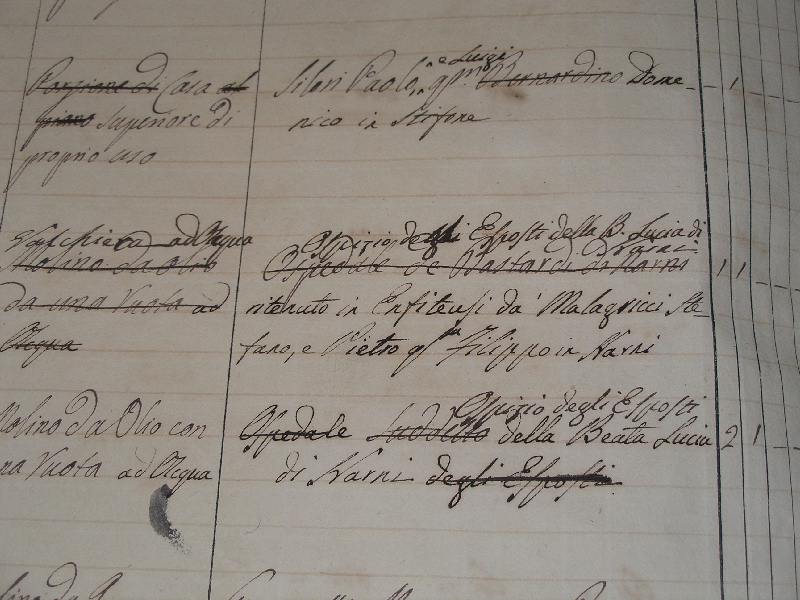 Porzione di Casa al
piano superiore di
proprio uso
Silori Paolo, e Luigi qm Bernardino Dome- 1
nico in Stifone
Valchiera ad Acqua
Molino da olio
da una Ruota ad
Acqua
Ospizio degli Esposti della B. Lucia di
Narni
Ospedale de Bastardi di Narni 11
ritenuto in Enfiteusi da Malagricci Ste-
fano, e Pietro qm Filippo in Narni
Molino da Olio con
na Ruota ad Acqua
Ospizio degli Esposti
Ospedale suddetto della Beata Lucia 2 1
di Narni degli Esposti